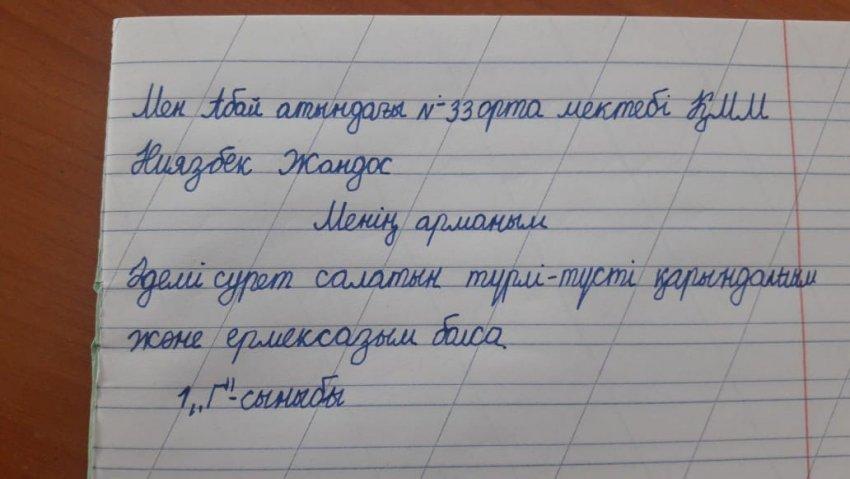 Мен Абай атындағы №33 орта мектебі ҚММ
Ниязбек Жандос
Менің арманым
Әдемі сурет салатын түрлі-түсті қарындашым
және ермексазым болса.
1 „Г"-сыныбы